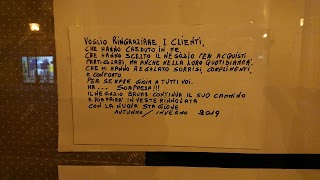 VOGLIO RINGRAZIARE I CLIENTI,
CHE HANNO CREDUTO IN ME,
CHE HANNO SCELTO IL NEGOZIO PER ACQUISTI
PARTICOLARI MA ANCHE NELLA LORO QUOTIDIANITA'
CHE MI HANNO REGALATO SORRISI, COMPLIMENTI,
E CONFORTO.
PER SEMPRE GIOIA A TUTTI VOI.
MA... SORPRESA!!!
IL NEGOZIO CONTINUA IL SUO CAMMINO
E RIAPRIRA' IN VESTE RINNOVATA
CON LA NUOVA STAGIONE
AUTUNNO/INVERNO 2019